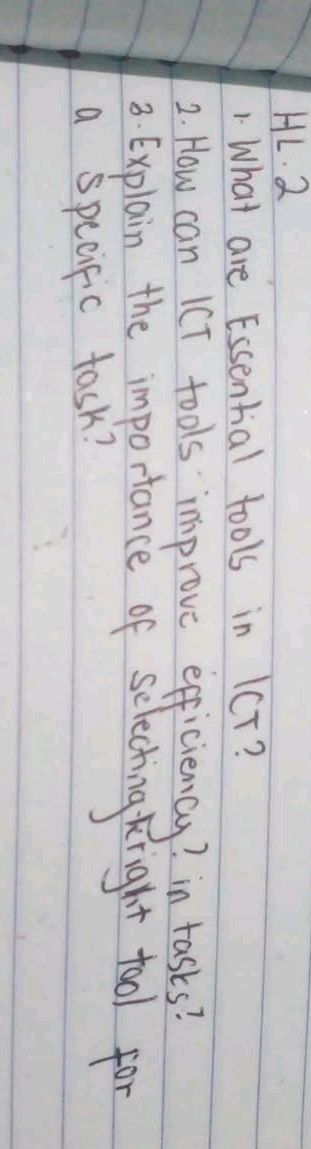 HL.2
1. What are Essential tools in ICT?
2. How can ICT tools improve efficiency? in tasks?
3. Explain the importance of selecting the right tool for
a specific task?